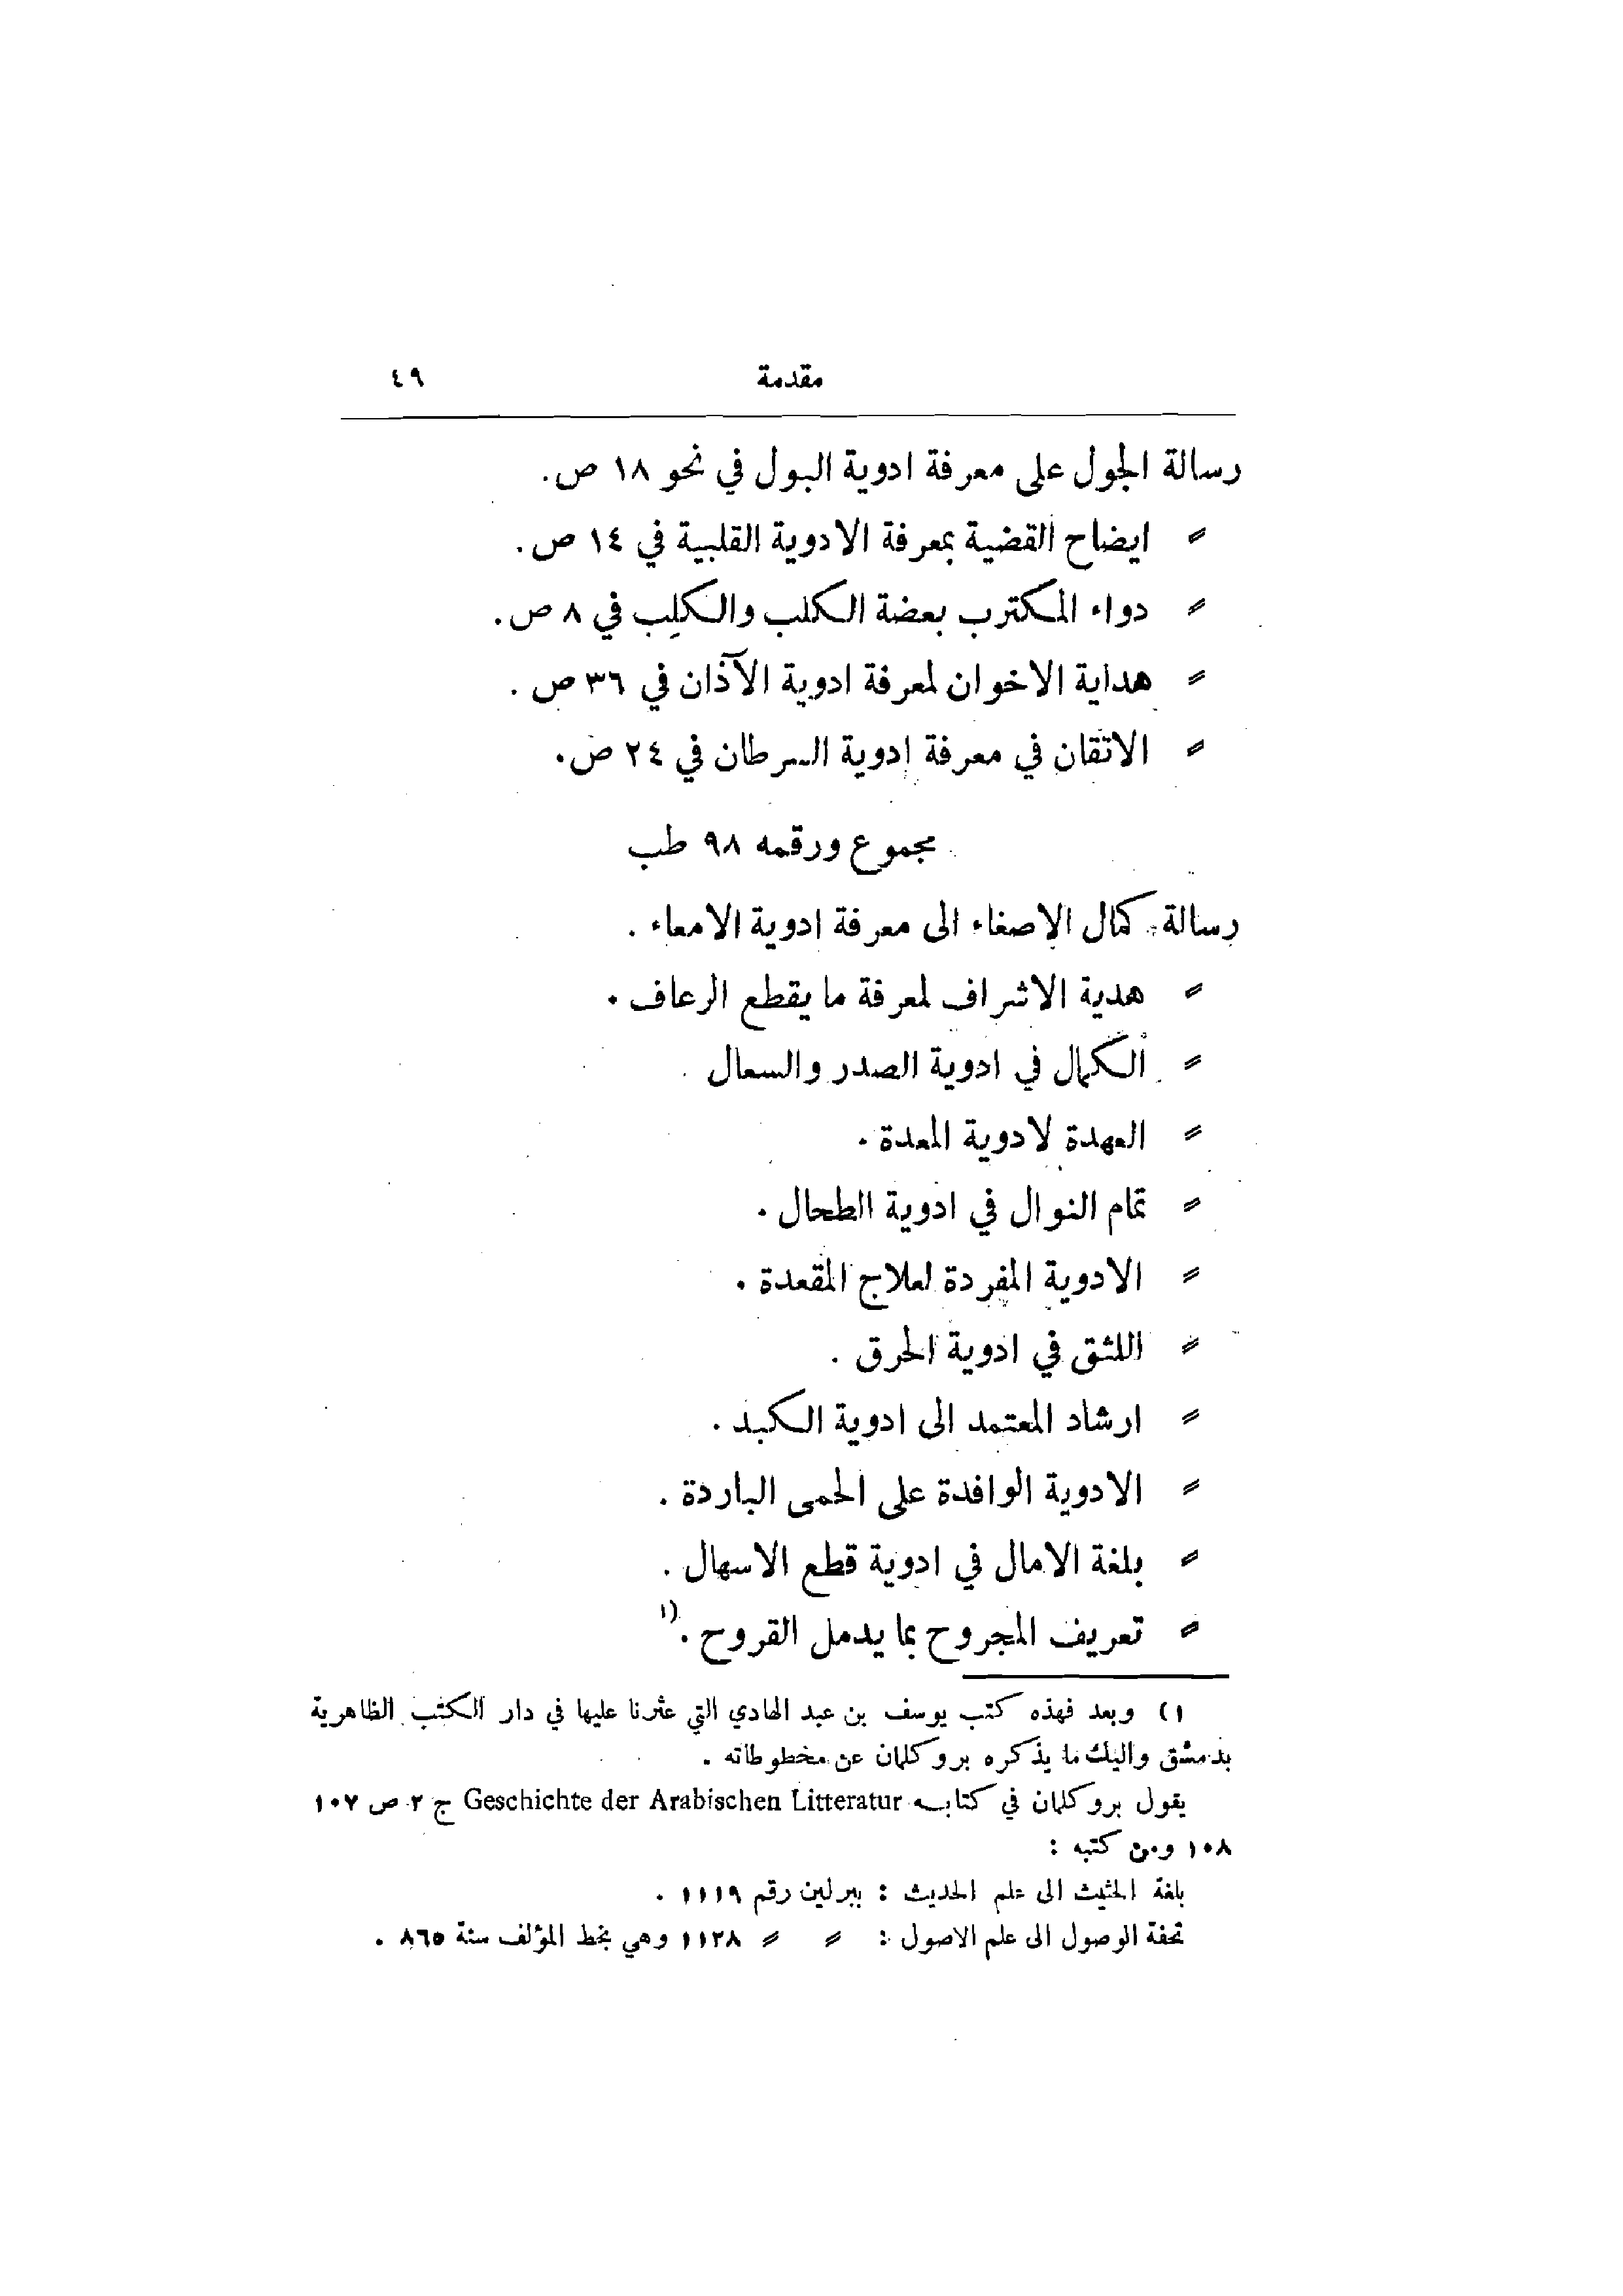 مقدمة ٤٩
رسالة الجول على معرفة ادوية البول في نحو ١٨ ص.
〃 ايضاح القضية بمعرفة الادوية القلبية في ١٤ ص.
〃 دواء المكترب بعضة الكلب والكلِب في ٨ ص.
〃 هداية الاخوان لمعرفة ادوية الآذان في ٣٦ ص.
〃 الاتقان في معرفة ادوية السرطان في ٢٤ ص.
مجموع ورقمه ٩٨ طب
رسالة كمال الاصغاء الى معرفة ادوية الامعاء.
〃 هدية الاشراف لمعرفة ما يقطع الرعاف.
〃 الكمال في ادوية الصدر والسعال
〃 العهدة لادوية المعدة.
〃 تمام النوال في ادوية الطحال.
〃 الادوية المفردة لعلاج المقعدة.
〃 اللثق في ادوية الحرق.
〃 ارشاد المعتمد الى ادوية الكبد.
〃 الادوية الوافدة على الحمى الباردة.
〃 بلغة الامال في ادوية قطع الاسهال.
〃 تعريف المجروح بما يدمل القروح. ١)
١) وبعد فهذه كتب يوسف بن عبد الهادي التي عثرنا عليها في دار الكتب الظاهرية
بدمشق واليك ما يذكره بروكلمان عن مخطوطاته.
يقول بروكلمان في كتابه Geschichte der Arabischen Litteratur ج ٢ ص ١٠٧
١٠٨ ومن كتبه :
بلغة الحثيث الى علم الحديث : ببرلين رقم ١١١٩.
تحفة الوصول الى علم الاصول : 〃 〃 ١١٢٨ وهي بخط المؤلف سنة ٨٦٥.